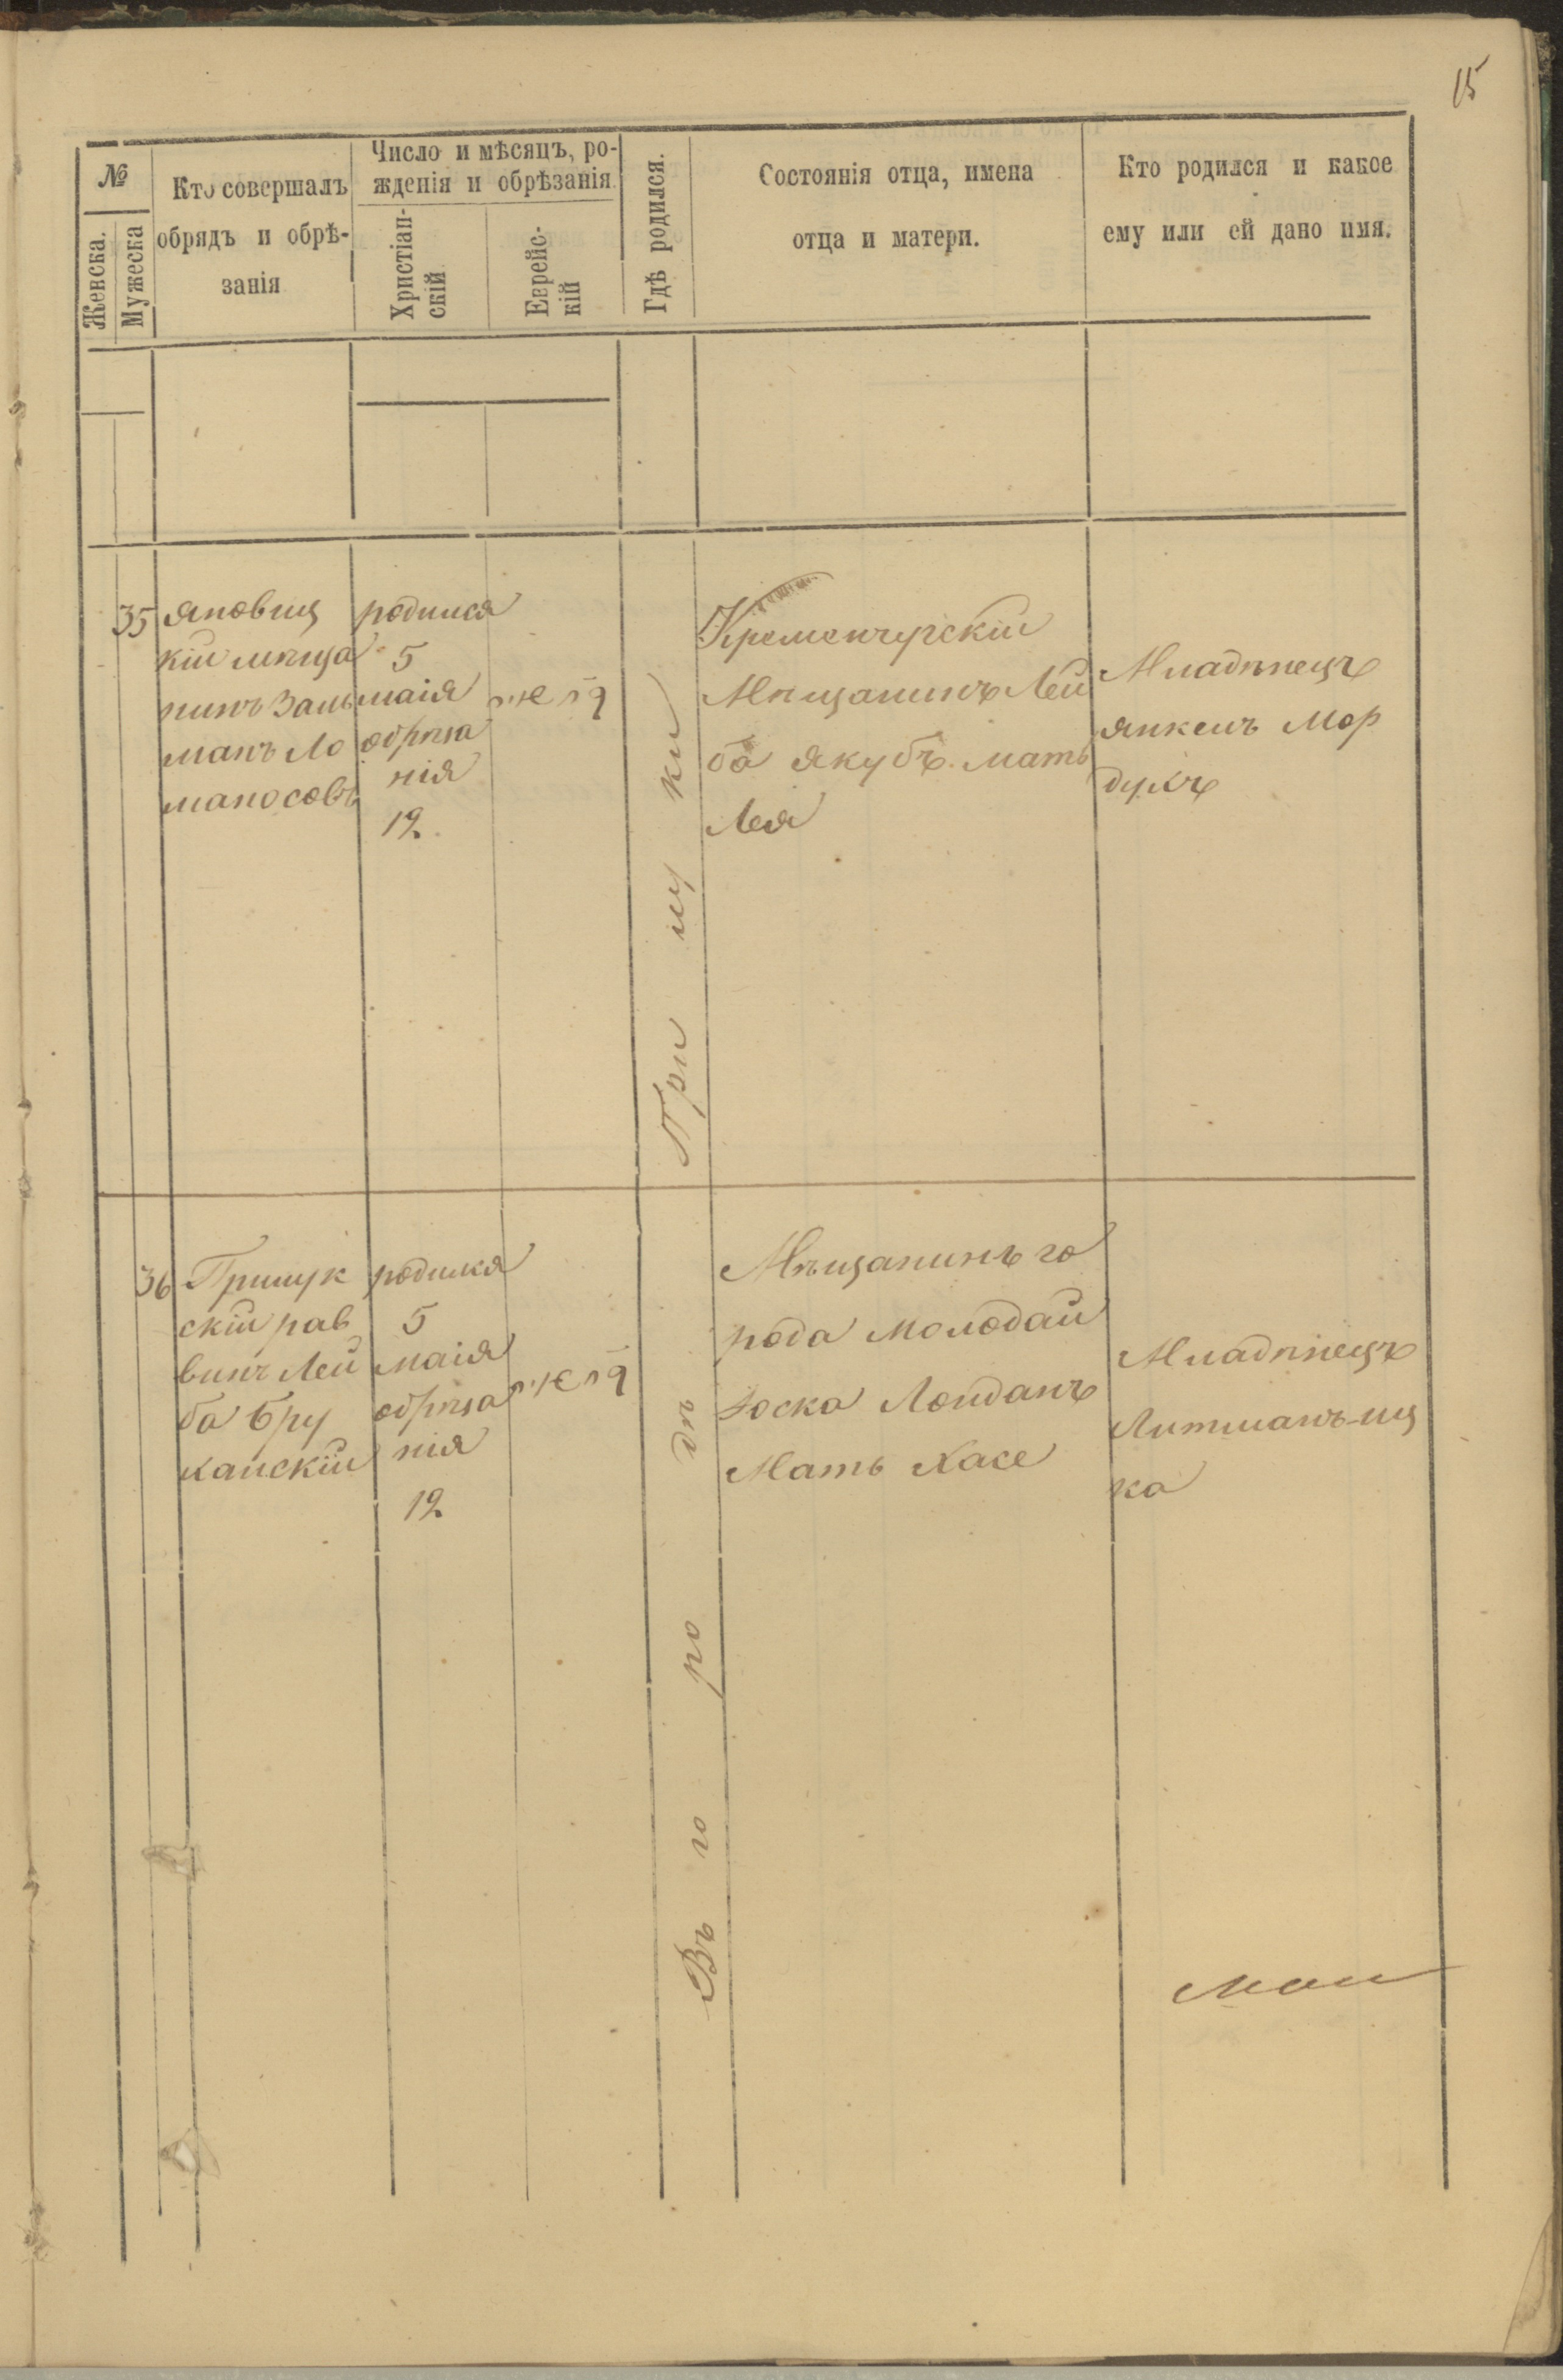 15
№
Женска.
Мужеска
Кто совершалъ
обрядъ и обрѣ-
занія
Число и мѣсяцъ, ро-
жденія и обрѣзанія
Христіан-
скій
Еврейс-
кій
Гдѣ родился.
Состоянія отца, имена
отца и матери.
Кто родился и какое
ему или ей дано имя.
35
Яновиц
кій мѣща
нинъ Заль
манъ Ло
маносовъ
родился
5
маія
обрѣза
нія
12
Кременчугскій
Мѣщанинъ Лей
ба Якубъ. мать
Лея
Младѣнецъ
Янкель Мор
духъ
36
Прилук
скій рав
винъ Лей
ба Бру
ханскій
родился
5
маія
обрѣза
нія
12
Въ го ро дѣ При лу ки
Мѣщанинъ го
рода
Іоска Лойданъ
Мать Хасе
Младѣнецъ
Литманъ-иц
ка